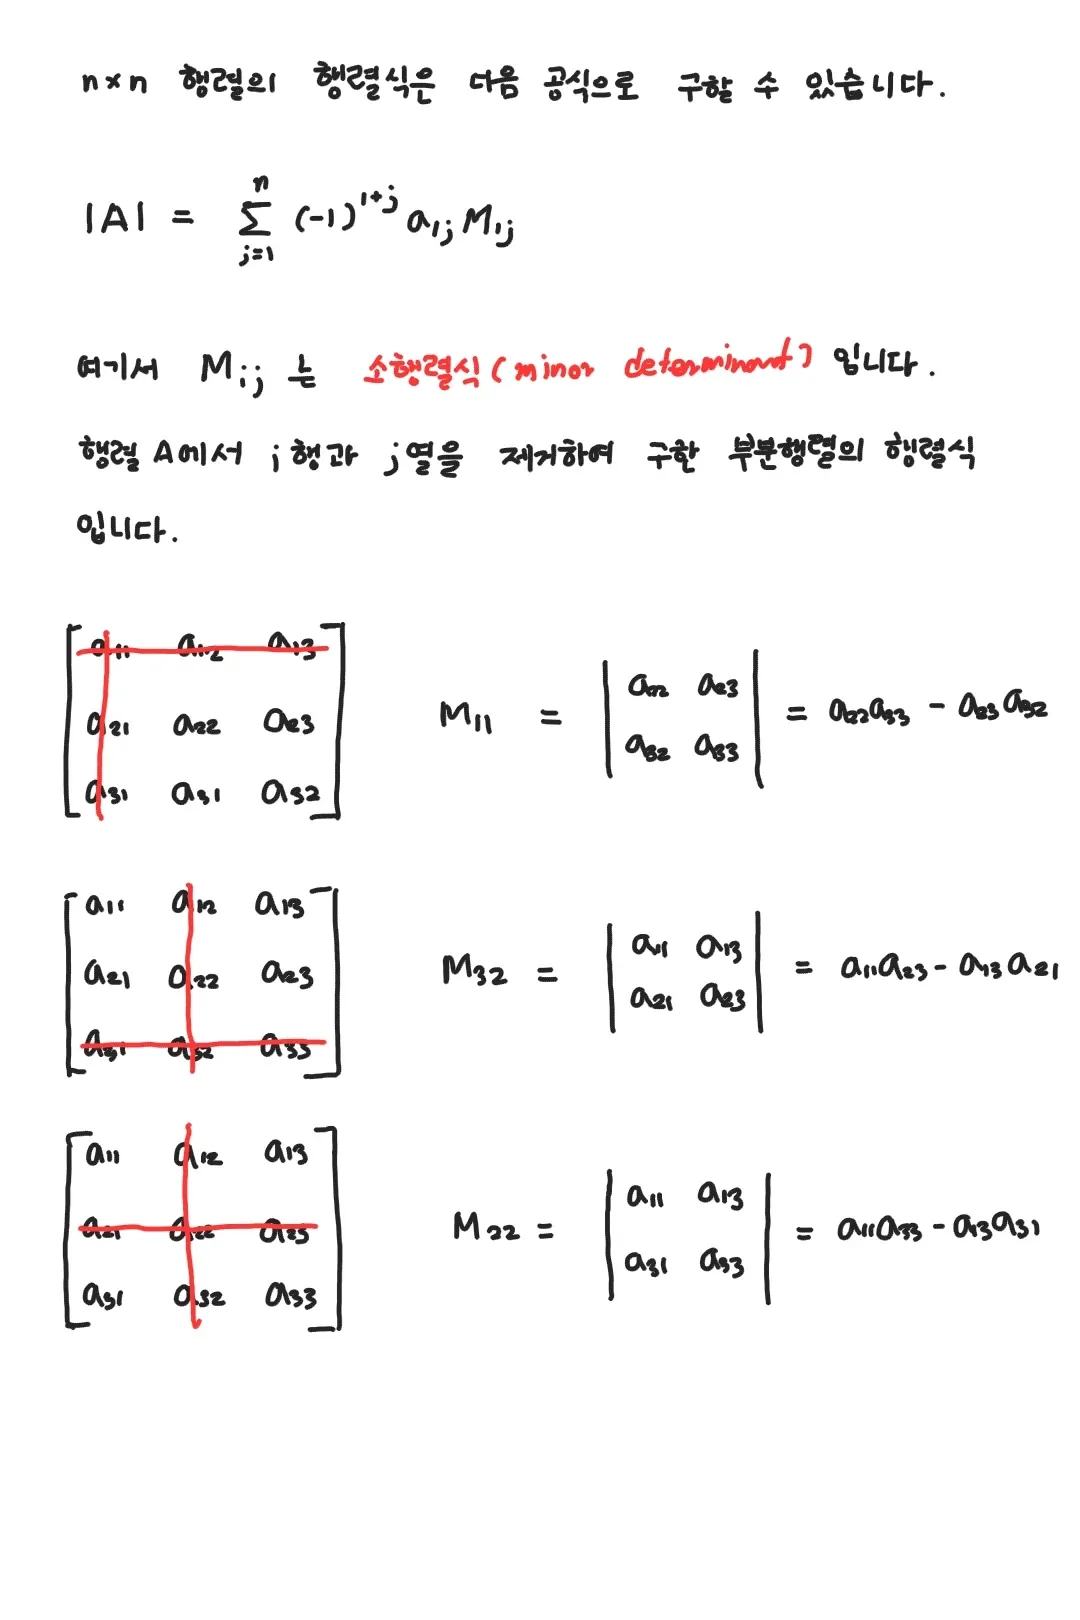 n×n 행렬의 행렬식은 다음 공식으로 구할 수 있습니다.
|A| = Σ_{j=1}^{n} (-1)^{1+j} a_{1j} M_{1j}
여기서 M_{ij} 는 소행렬식 (minor determinant) 입니다.
행렬 A에서 i행과 j열을 제거하여 구한 부분행렬의 행렬식
입니다.
a11 a12 a13
a21 a22 a23
a31 a31 a32
M11 = | a22 a23 | = a22a33 - a23a32
| a32 a33 |
a11 a12 a13
a21 a22 a23
a31 a32 a33
M32 = | a11 a13 | = a11a23 - a13a21
| a21 a23 |
a11 a12 a13
a21 a22 a23
a31 a32 a33
M22 = | a11 a13 | = a11a33 - a13a31
| a31 a33 |